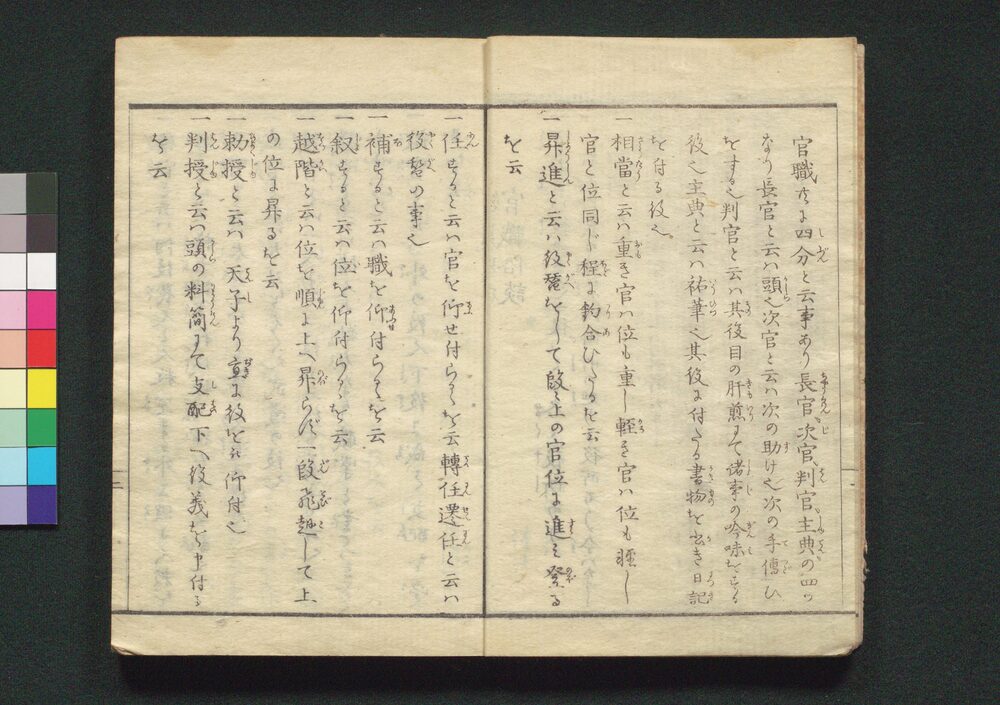 官職すに四分と云事あり長官次官判官主典の四ツ
なり長官と云ハ頭也次官と云ハ次の助け也次の手傳ひ
をする也判官と云ハ其役目の肝煎にて諸事の吟味をする
役也主典と云ハ祐筆也其役に付たる書物を書き日記
を付る役也
一相當と云ハ重き官ハ位も重し軽き官ハ位も軽し
官と位同じ程に釣合ひたるを云
一昇進と云ハ役替をして段々上の官位に進み登る
を云
一任ずると云ハ官を仰せ付らるゝを云轉任遷任と云ハ
役替の事也
一補すると云ハ職を仰付らるゝを云
一叙すると云ハ位を仰付らるゝを云
一越階と云ハ位を順に上へ昇らず一段飛越して上
の位に昇るを云
一勅授と云ハ天子より直に役を被仰付也
一判授と云ハ頭の料簡にて支配下へ役義を申付る
を云